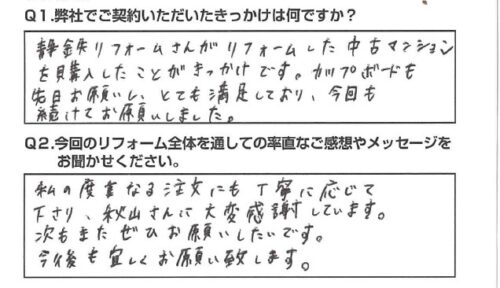 Q1.弊社でご契約いただいたきっかけは何ですか？
静鉄リフォームさんがリフォームした中古マンション
を購入したことがきっかけです。カップボードも
先日お願いし、とても満足しており、今回も
続けてお願いしました。
Q2.今回のリフォーム全体を通しての率直なご感想やメッセージを
お聞かせください。
私の度重なる注文にも丁寧に応じて
下さり、秋山さんに大変感謝しています。
次もまたぜひお願いしたいです。
今後も宜しくお願い致します。